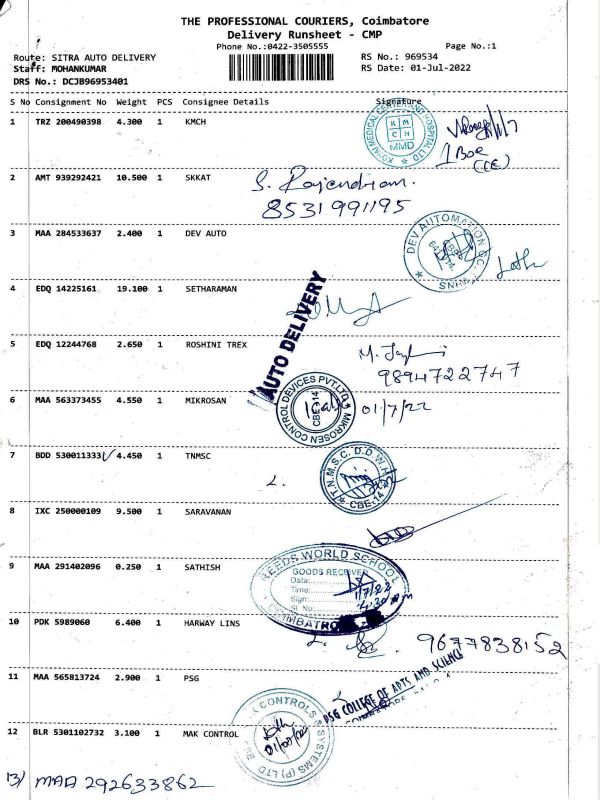 THE PROFESSIONAL COURIERS, Coimbatore
Delivery Runsheet - CMP
Phone No.:0422-3505555
Page No.:1
Route: SITRA AUTO DELIVERY
RS No.: 969534
Staff: MOHANKUMAR
RS Date: 01-Jul-2022
DRS No.: DCJB96953401
S No Consignment No Weight PCS Consignee Details Signature
1 TRZ 200490398 4.300 1 KMCH
KOVAI MEDICAL CENTER AND HOSPITAL LTD
K M
C H
MMD
1 Box
(CE)
2 AMT 939292421 10.500 1 SKKAT
S. Rajendran.
8531991195
3 MAA 284533637 2.400 1 DEV AUTO
DEV AUTOMATION
4 EDQ 14225161 19.100 1 SETHARAMAN
AUTO DELIVERY
5 EDQ 12244768 2.650 1 ROSHINI TREX
9894722747
6 MAA 563373455 4.550 1 MIKROSAN
MIKROSEN CONTROL DEVICES PVT LTD
CBE-14
01/7/22
7 BDD 530011333 4.450 1 TNMSC
T.N.M.S.C. D.D.W.H
CBE-14
8 IXC 250000109 9.500 1 SARAVANAN
9 MAA 291402096 0.250 1 SATHISH
REEDS WORLD SCHOOL
GOODS RECEIVED
Date:
Time:
Sign:
Sl No:
1/7/22
4.30 pm
10 PDK 5989060 6.400 1 HARWAY LINS
9677838152
11 MAA 565813724 2.900 1 PSG
PSG COLLEGE OF ARTS AND SCIENCE
12 BLR 5301102732 3.100 1 MAK CONTROL
CONTROLS & SYSTEMS (P) LTD
13) MAA 292633862